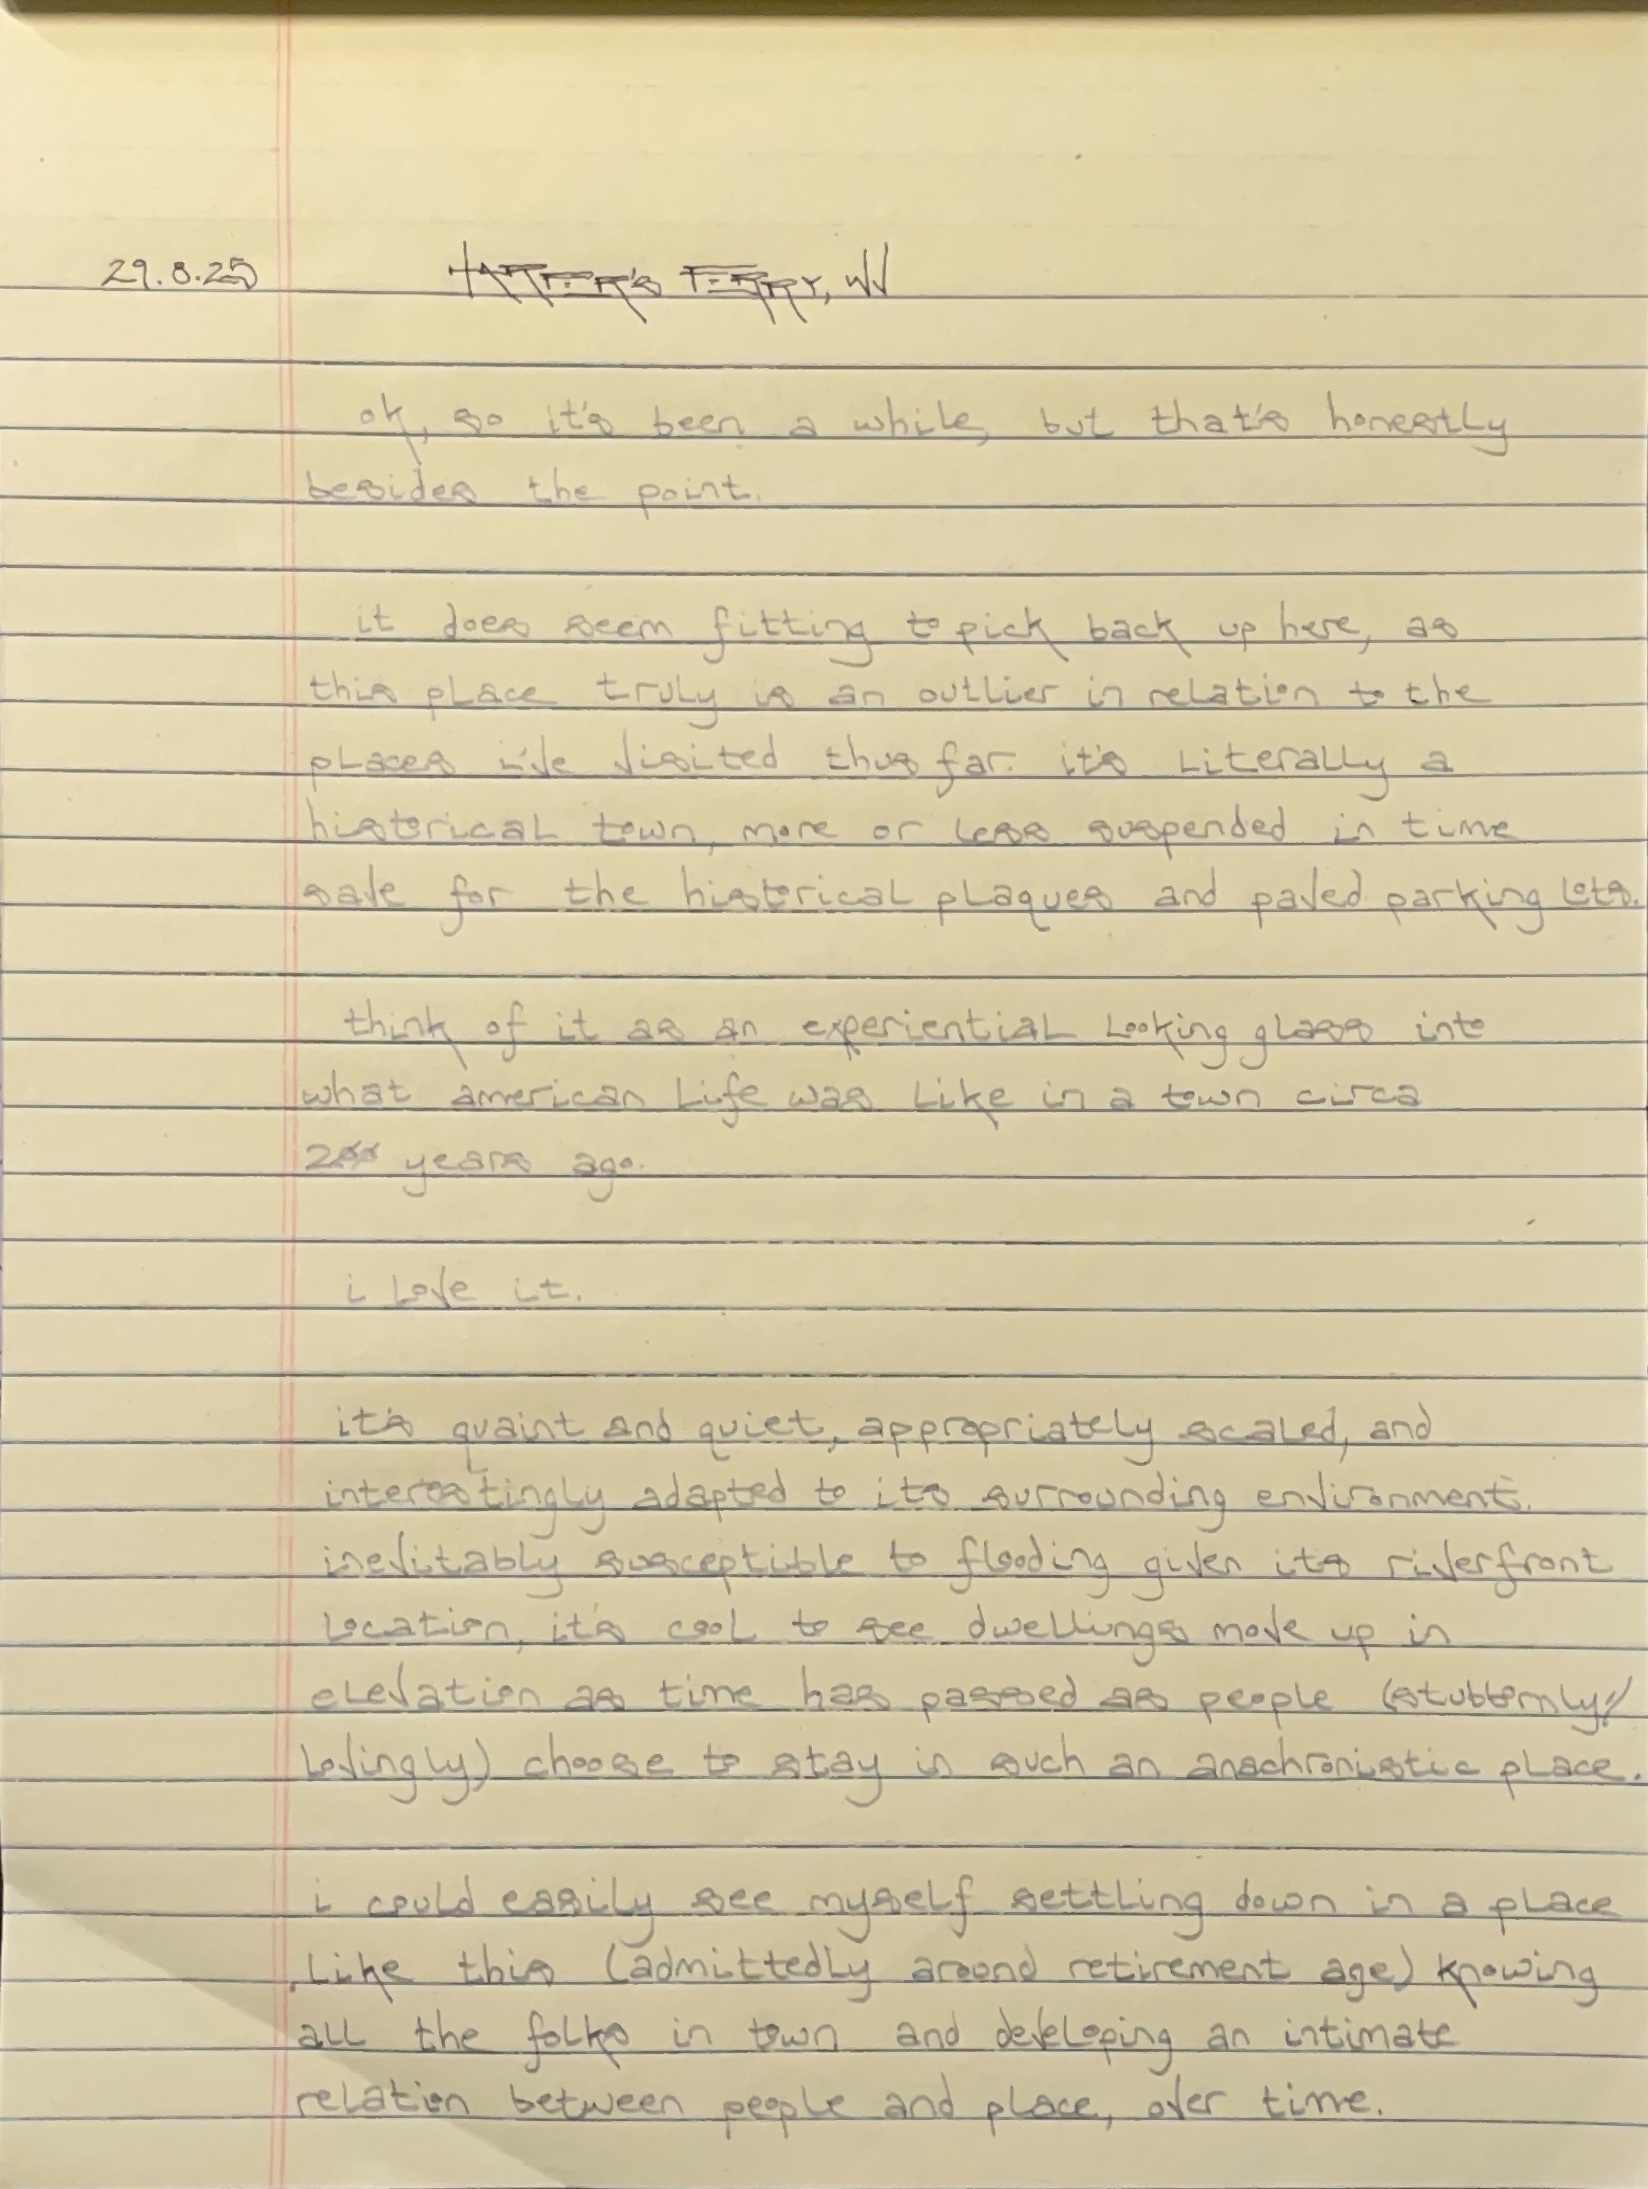 29.8.25 HARPER'S FERRY, WV
ok, so it's been a while, but that's honestly
besides the point.
it does seem fitting to pick back up here, as
this place truly is an outlier in relation to the
places i've visited thus far. it's literally a
historical town, more or less suspended in time
save for the historical plaques and paved parking lots.
think of it as an experiential looking glass into
what american life was like in a town circa
200 years ago.
i love it.
it's quaint and quiet, appropriately scaled, and
interestingly adapted to its surrounding environment.
inevitably susceptible to flooding given its riverfront
location, it's cool to see dwellings move up in
elevation as time has passed as people (stubbornly/
lovingly) choose to stay in such an anachronistic place.
i could easily see myself settling down in a place
like this (admittedly around retirement age) knowing
all the folks in town and developing an intimate
relation between people and place, over time.